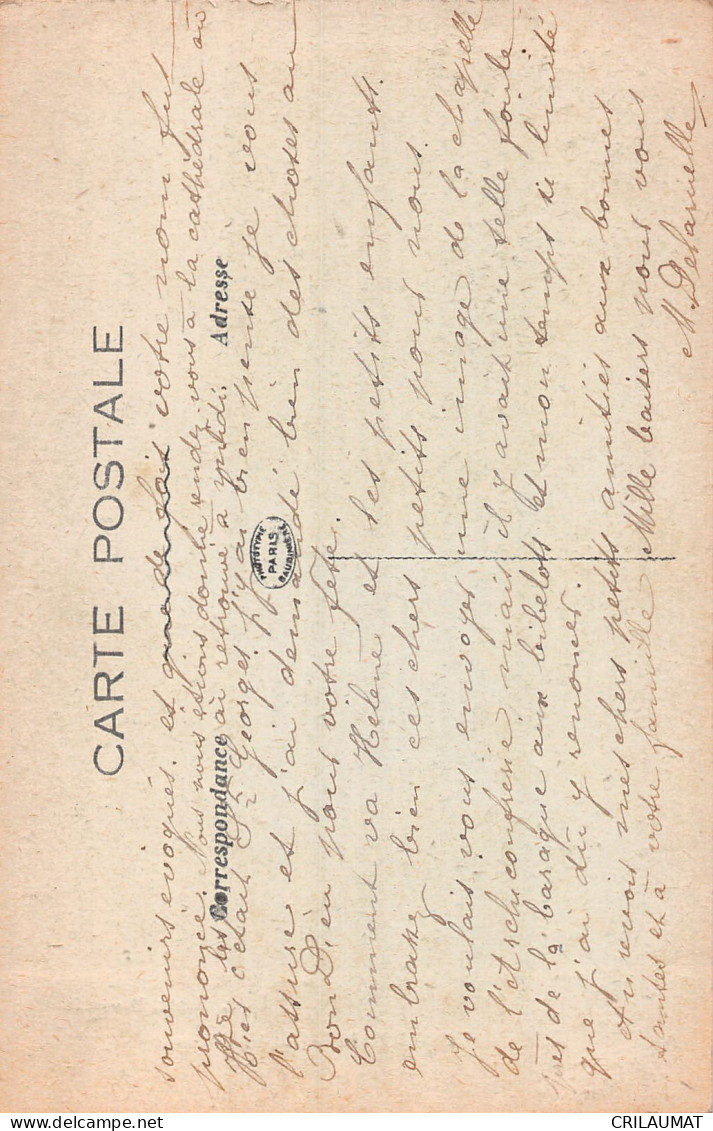 CARTE POSTALE
Correspondance
Adresse
PHOTOTYPIE
PARIS
BAUDINIERE
souvenirs évoqués. et votre nom fut
prononcé. Nous nous étions donné rendez-vous à la cathédrale où,
ai retrouvé à midi.
c'était St Georges. J'y ai bien pensé je vous
l'assure et j'ai demandé bien des choses au
Bon Dieu pour votre fête.
Comment va Hélène et ses petits enfants.
embrasez bien ces chers petits pour nous.
Je voulais vous envoyer une image de la chapelle
de l'Archiconfrérie, mais il y avait une telle foule
près de la baraque aux bibelots et mon temps si limité
que j'ai dû y renoncer.
Au revoir mes chers petits amitiés aux bonnes
tantes et à votre famille Mille baisers pour vous
M. Delaruelle
CRILAUMAT